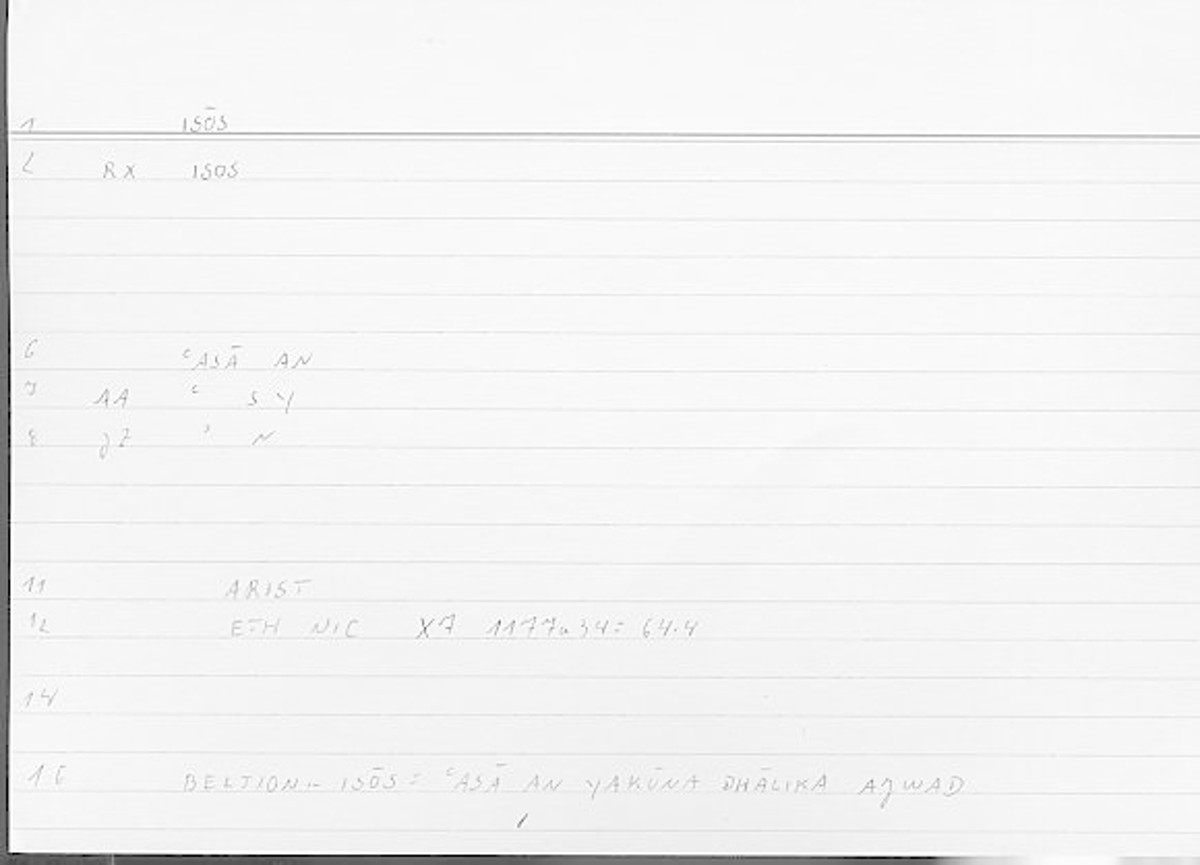 1 ISŌS
2 RX ISOS
6 ʿASĀ AN
7 AA ʿ S Y
8 JZ ʾ N
11 ARIST
12 ETH NIC X7 1177a34= 64.4
14
16 BELTION.. ISŌS = ʿASĀ AN YAKŪNA DHĀLIKA AJWAD